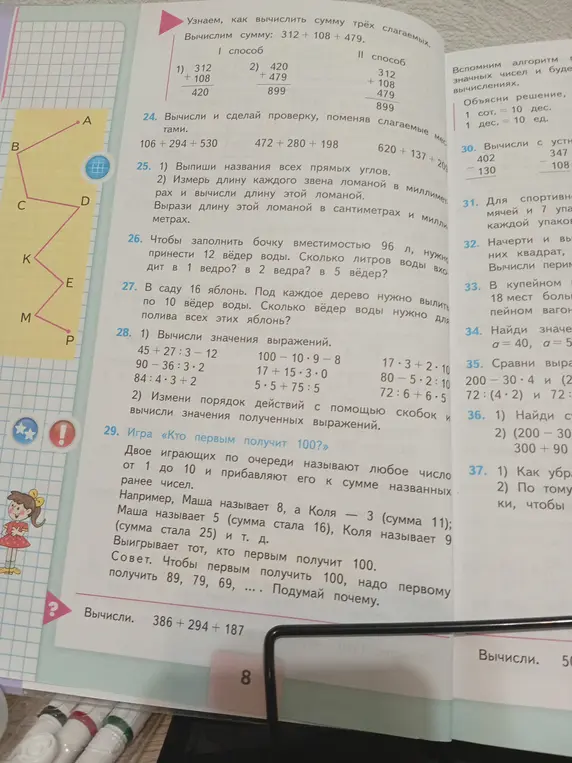 Узнаем, как вычислить сумму трёх слагаемых.
Вычислим сумму: 312 + 108 + 479.
I способ
II способ
1) 312
+ 108
420
2) 420
+ 479
899
312
+ 108
479
899
24. Вычисли и сделай проверку, поменяв слагаемые
тами.
106 + 294 + 530 472 + 280 + 198 620 + 137 +
25. 1) Выпиши названия всех прямых углов.
2) Измерь длину каждого звена ломаной в
рах и вычисли длину этой ломаной.
Вырази длину этой ломаной в сантиметрах и
метрах.
26. Чтобы заполнить бочку вместимостью 96 л, нужно
принести 12 вёдер воды. Сколько литров воды вхо
дит в 1 ведро? в 2 ведра? в 5 вёдер?
27. В саду 16 яблонь. Под каждое дерево нужно вылить
по 10 вёдер воды. Сколько вёдер воды нужно для
полива всех этих яблонь?
28. 1) Вычисли значения выражений.
45 + 27 : 3 − 12 100 − 10 · 9 − 8 17 · 3 + 2 · 10
90 − 36 : 3 · 2 17 + 15 · 3 · 0 80 − 5 · 2 : 10
84 : 4 · 3 + 2 5 · 5 + 75 : 5 72 : 6 + 6 · 5
2) Измени порядок действий с помощью скобок и
вычисли значения полученных выражений.
29. Игра «Кто первым получит 100?»
Двое играющих по очереди называют любое число
от 1 до 10 и прибавляют его к сумме названных
ранее чисел.
Например, Маша называет 8, а Коля — 3 (сумма 11);
Маша называет 5 (сумма стала 16), Коля называет 9
(сумма стала 25) и т. д.
Выигрывает тот, кто первым получит 100.
Совет. Чтобы первым получить 100, надо первому
получить 89, 79, 69, ... . Подумай почему.
?
Вычисли. 386 + 294 + 187
8
A
B
C
D
K
E
M
P
!
Вспомним алгоритм
значных чисел и буде
вычислениях.
Объясни решение,
1 сот. = 10 дес.
1 дес. = 10 ед.
30. Вычисли с уст
− 402 347
130 108
31. Для спортивн
мячей и 7 упа
каждой упако
32. Начерти и вы
них квадрат,
Вычисли пери
33. В купейном
18 мест боль
пейном вагон
34. Найди значе
a = 40, a = 5
35. Сравни выра
200 − 30 · 4 и (2
72 : (4 · 2) и 72 :
36. 1) Найди с
2) (200 − 30
300 + 90
37. 1) Как убра
2) По тому
ки, чтобы
Вычисли. 5